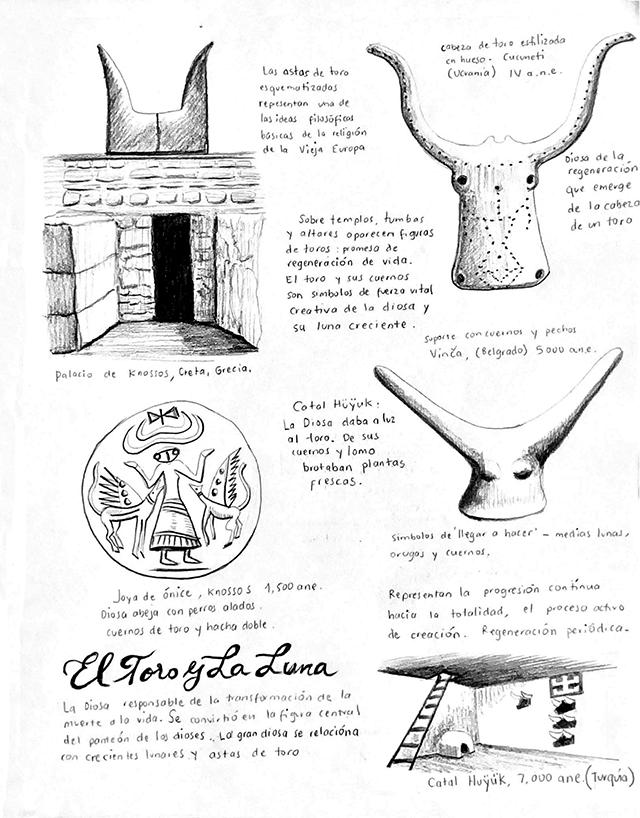 Las astas de toro
esquematizadas
representan una de
las ideas filosóficas
básicas de la religión
de la Vieja Europa
cabeza de toro estilizada
en hueso - Cucuneti
(Ucrania) IV a.n.e.
Diosa de la
regeneración
que emerge
de la cabeza
de un toro
Sobre templos, tumbas
y altares aparecen figuras
de toros: promesa de
regeneración de vida.
El toro y sus cuernos
son simbolos de fuerza vital
creativa de la diosa y
su luna creciente.
Palacio de Knossos, Creta, Grecia.
suporte con cuernos y pechos
Vinča, (Belgrado) 5000 ane.
Catal Hüÿuk:
La Diosa daba a luz
al toro. De sus
cuernos y lomo
brotaban plantas
frescas.
Simbolos de 'llegar a hacer' - medias lunas,
orugas y cuernos.
Joya de ónice, Knossos 1,500 ane.
Diosa abeja con perros alados.
cuernos de toro y hacha doble.
Representan la progresión continua
hacia la totalidad, el proceso activo
de creación. Regeneración periódica.
El Toro y La Luna
La Diosa responsable de la transformación de la
muerte a la vida. Se convirtió en la figura central
del panteón de los dioses. La gran diosa se relacióna
con crecientes lunares y astas de toro
Catal Huÿük, 7,000 ane. (Turquía)